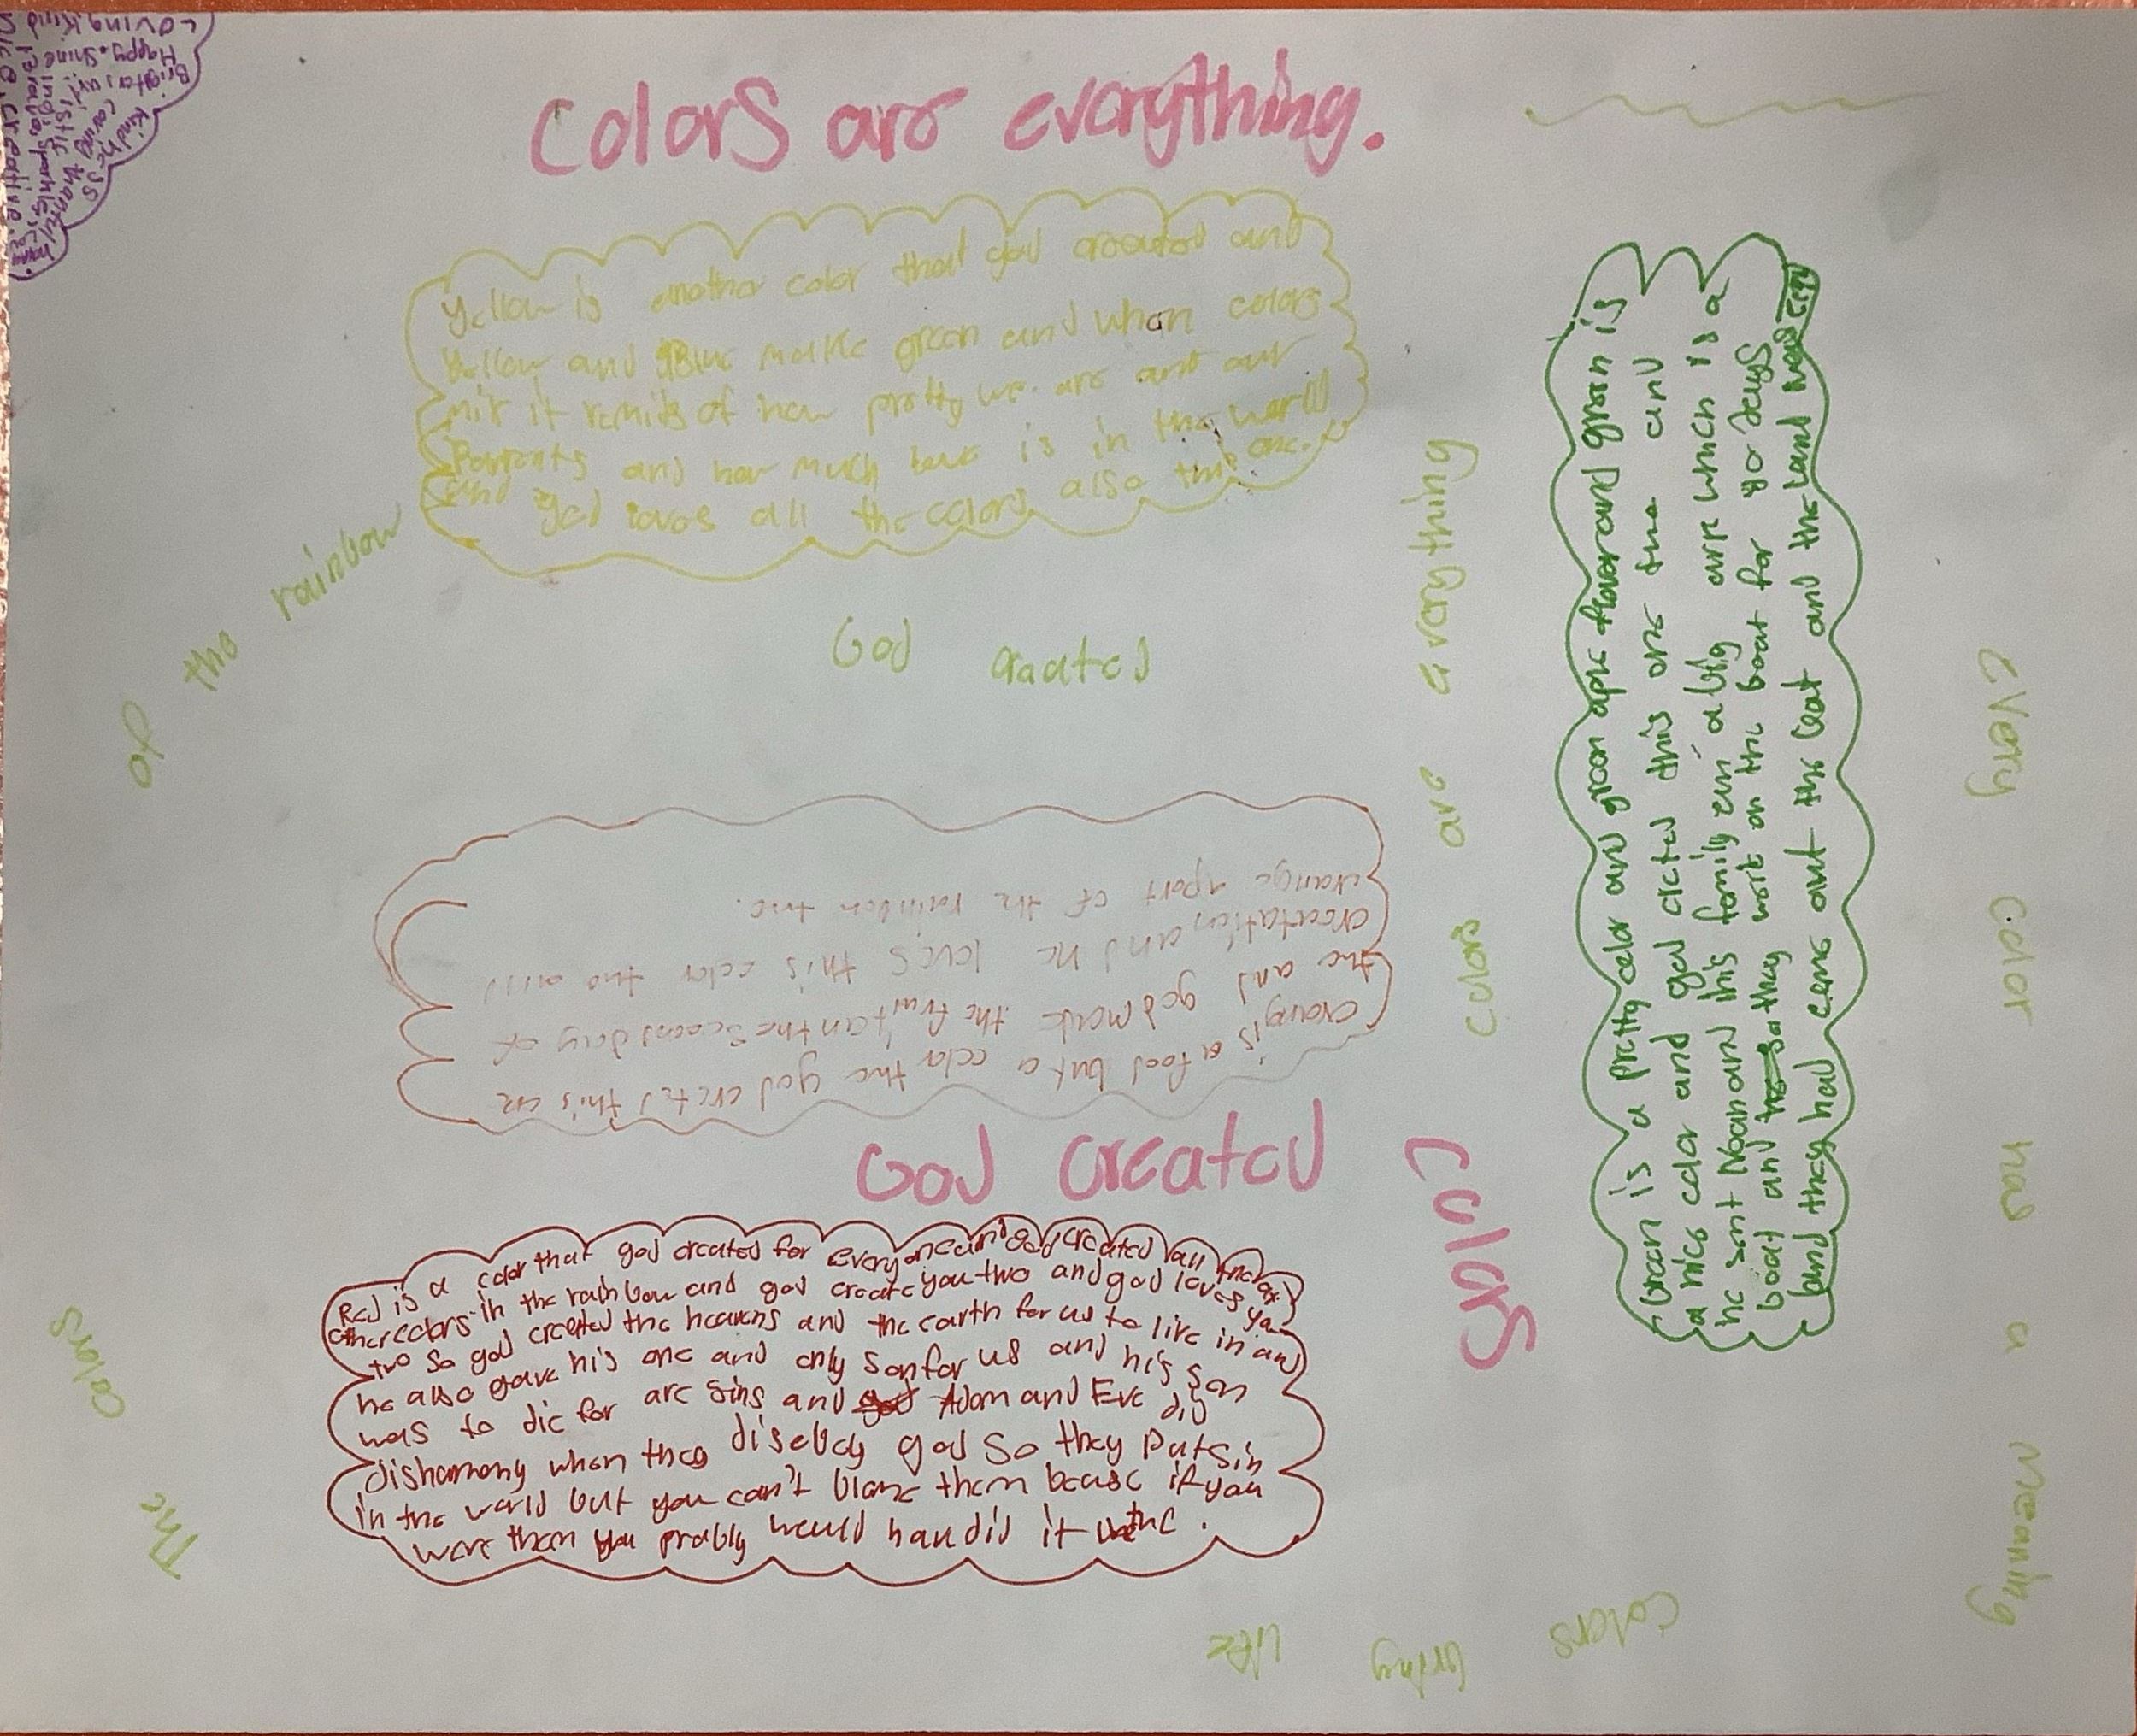 Colors are everything.
Loving kind
Happy. Shine
Bright
kindness
caring
artistic
sparkle
creative
Yellow is another color that god created and
Yellow and Blue make green and when colors
mix it remids of how pretty we are and our
Parents and how much love is in the world
and god loves all the colors also this one.
God created
The colors of the rainbow
colors are everything
orange is a food but a color two god creted this on
two and god made the fruit on the second day of
creatation, and he loves this color two and
orange apart of the rainbow two.
God created
colors
Red is a color that god created for everyone and god created all the
other colors in the rainbow and god create you two and god loves you
two so god created the heavens and the earth for us to live in and
he also gave his one and only son for us and his son
was to die for are sins and god Adam and Eve did
disharmony when they disebdy god so they put sin
in the world but you can't blame them beause if you
were them you prably would han did it
Green is a pretty color and green aple flaver and green is
a nice color and god creted this one two and
he sent Noah and this family a big ark which is a
boat and so they on the boat for days
and they had come out the boat and the land was
every color has a meaning
colors bring life